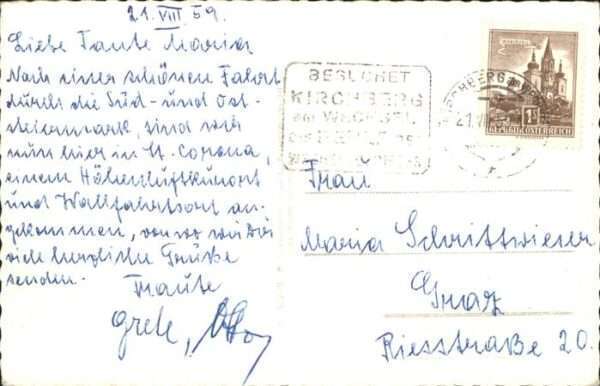 21. VIII. 59.
Liebe Tante Maria
Nach einer schönen Fahrt
durch die Süd- und Ost-
steiermark, sind wir
nun hier in St. Corona,
einem Höhenluftkurort
und Wallfahrtsort an-
gekommen, von wo wir Dir
viele herzliche Grüße
senden.
Traute
Grete, Otto
BESUCHET
KIRCHBERG
AM WECHSEL
KIRCHBERG
REPUBLIK ÖSTERREICH
Frau
Maria Schrittwieser
Graz
Riesstraße 20.